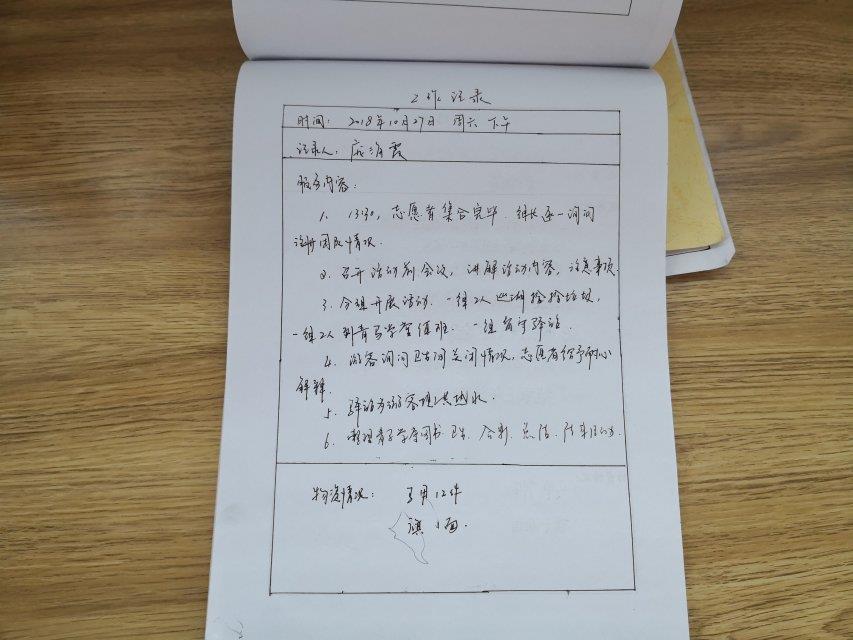 工作记录
时间: 2018年10月27日 周六 下午
记录人: 霞
服务内容:
1. 13:30, 志愿者集合完毕. 组长逐一询问
注册团队情况.
2. 召开活动前会议, 讲解活动内容, 注意事项.
3. 分组开展活动. 一组2人巡湖捡捡垃圾,
一组2人到青马学堂值班. 一组留守驿站.
4. 游客询问卫生间关闭情况, 志愿者给予耐心
解释.
5. 驿站为游客提供热水.
6. 整理青马学堂图书. 卫生. 合影. 总结. 结束活动.
物资情况: 马甲12件
旗1面.